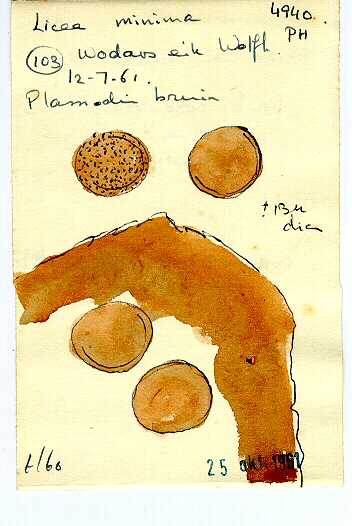 Licea minima
4940.
PH
103 Wodans eik Wolfh.
12-7-61.
Plasmodium bruin
± 13 µ
dia
t/60
25 okt 1961